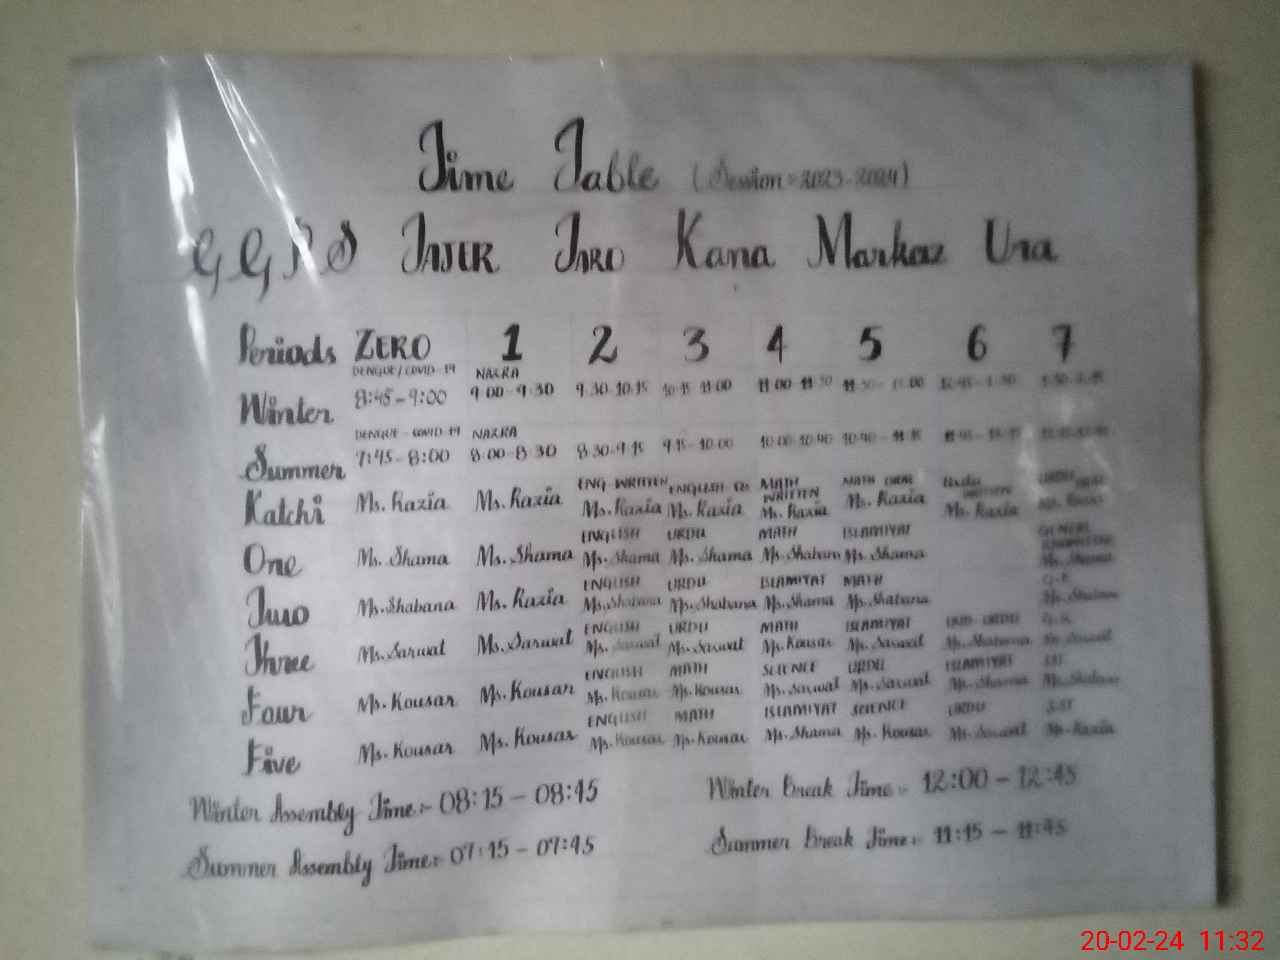 Time Table (Session:- 2023-2024)
G G P S JAJER JARO Kana Markaz Ura
Periods ZERO 1 2 3 4 5 6 7
DENGUE/COVID-19 NAZRA
Winter 8:45-9:00 9:00-9:30 9:30-10:15 10:15-11:00 11:00-11:30 11:30- 12:45-1:30
DENGUE-COVID-19 NAZRA
Summer 7:45-8:00 8:00-8:30 8:30-9:15 9:15-10:00 10:00-10:40 10:40-11:15
ENG WRITTEN ENGLISH MATH WRITTEN MATH ORAL Urdu WRITTEN URDU ORAL
Katchi Ms. Razia Ms. Razia Ms. Razia Ms. Razia Ms. Razia Ms. Razia Ms. Razia Ms. Razia
ENGLISH URDU MATH ISLAMIYAT
One Ms. Shama Ms. Shama Ms. Shama Ms. Shama Ms. Shabana Ms. Shama Ms. Shama
ENGLISH URDU ISLAMIYAT MATH G.K
Two Ms. Shabana Ms. Razia Ms. Shabana Ms. Shabana Ms. Shama Ms. Shabana Ms. Shabana
ENGLISH URDU MATH ISLAMIYAT URDU G.K
Three Ms. Sarwat Ms. Sarwat Ms. Sarwat Ms. Sarwat Ms. Kousar Ms. Sarwat Ms. Shabana Ms. Sarwat
ENGLISH MATH SCIENCE URDU ISLAMIYAT SST
Four Ms. Kousar Ms. Kousar Ms. Kousar Ms. Kousar Ms. Sarwat Ms. Sarwat Ms. Shama Ms. Shabana
ENGLISH MATH ISLAMIYAT SCIENCE URDU S.ST
Five Ms. Kousar Ms. Kousar Ms. Kousar Ms. Kousar Ms. Shama Ms. Kousar Ms. Sarwat Ms. Razia
Winter Assembly Time:- 08:15-08:45 Winter Break Time:- 12:00-12:45
Summer Assembly Time:- 07:15-07:45 Summer Break Time:- 11:15-11:45
20-02-24 11:32